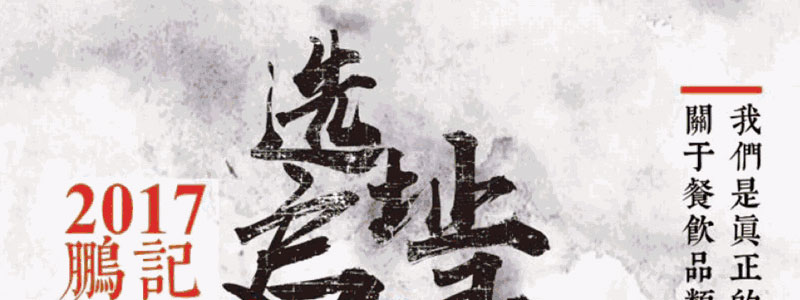 选址
2017
鵬記
我們是眞正
關于餐飲品類